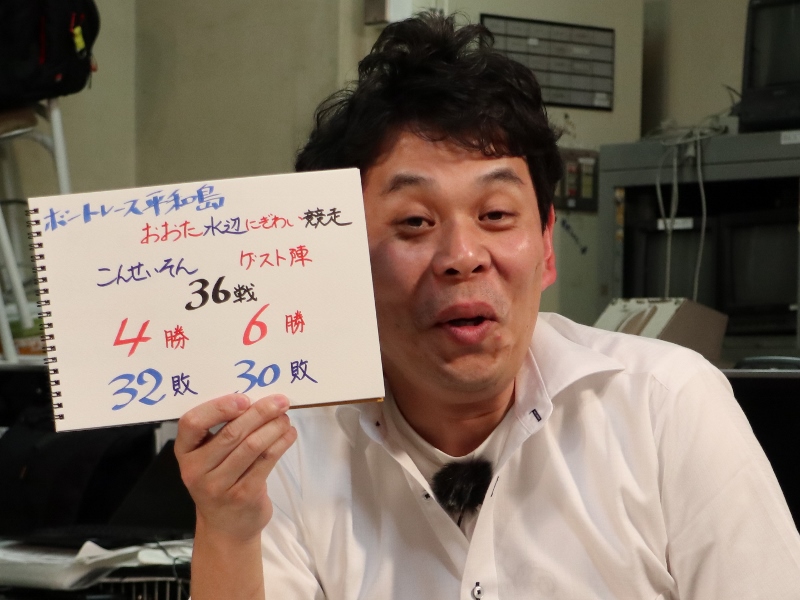 ボートレース平和島
おおた水辺にぎわい競走
こんせいそん ゲスト陣
36戦
4勝 6勝
32敗 30敗